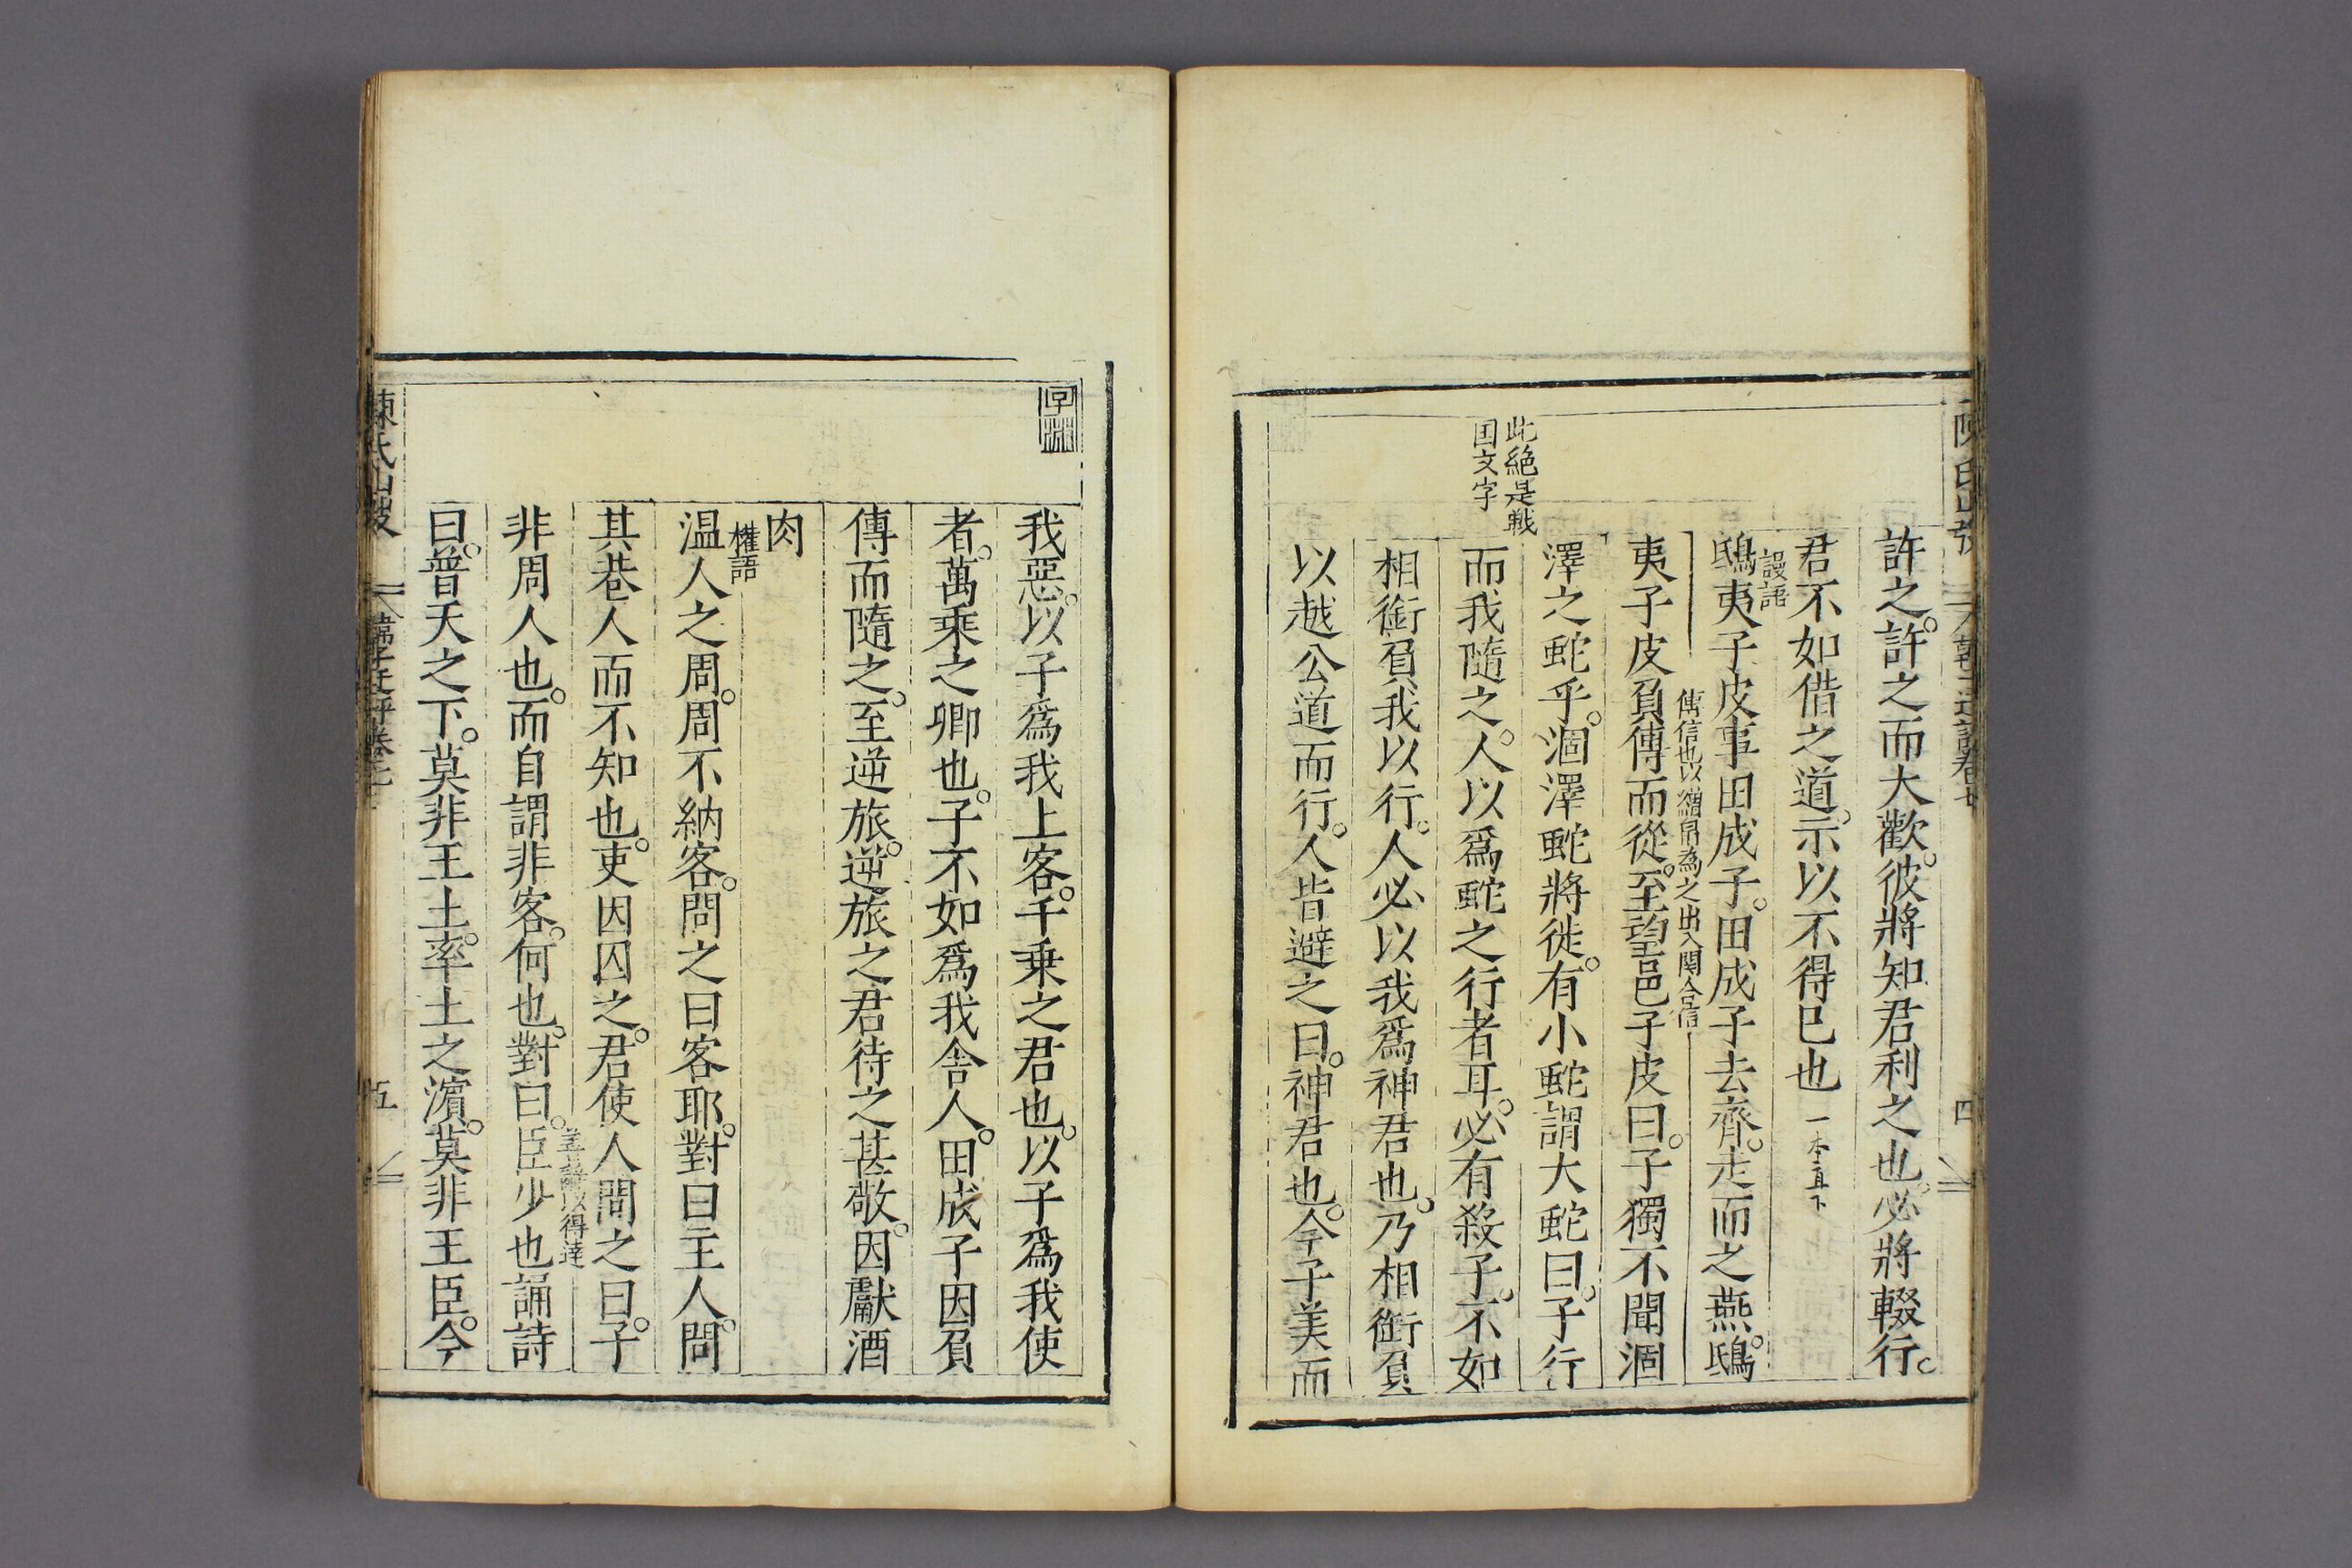 許之。許之而大歡。彼將知君利之也。必將輟行。
君不如借之道。示以不得已也 一本直下
謾語
鴟夷子皮事田成子。田成子去齊。走而之燕。鴟
傳信也以繒帛為之出入関合信
夷子皮負傳而從。至望邑子皮曰。子獨不聞涸
此絶是戰
国文字
澤之蛇乎。涸澤蛇將徙。有小蛇謂大蛇曰。子行
而我隨之。人以爲蛇之行者耳。必有殺子。不如
相銜負我以行。人必以我爲神君也。乃相銜負
以越公道而行。人皆避之曰。神君也。今子美而
四
我惡。以子爲我上客。千乗之君也。以子爲我使
者。萬乗之卿也。子不如爲我舎人。田成子因負
傳而隨之。至逆旅。逆旅之君待之甚敬。因獻酒
肉
權語
温人之周。周不納客。問之曰客耶。對曰主人。問
其巷人而不知也。吏因囚之。君使人問之曰。子
以得達
非周人也。而自謂非客。何也。對曰。臣少也誦詩
曰。普天之下。莫非王土。率土之濵。莫非王臣。今
五